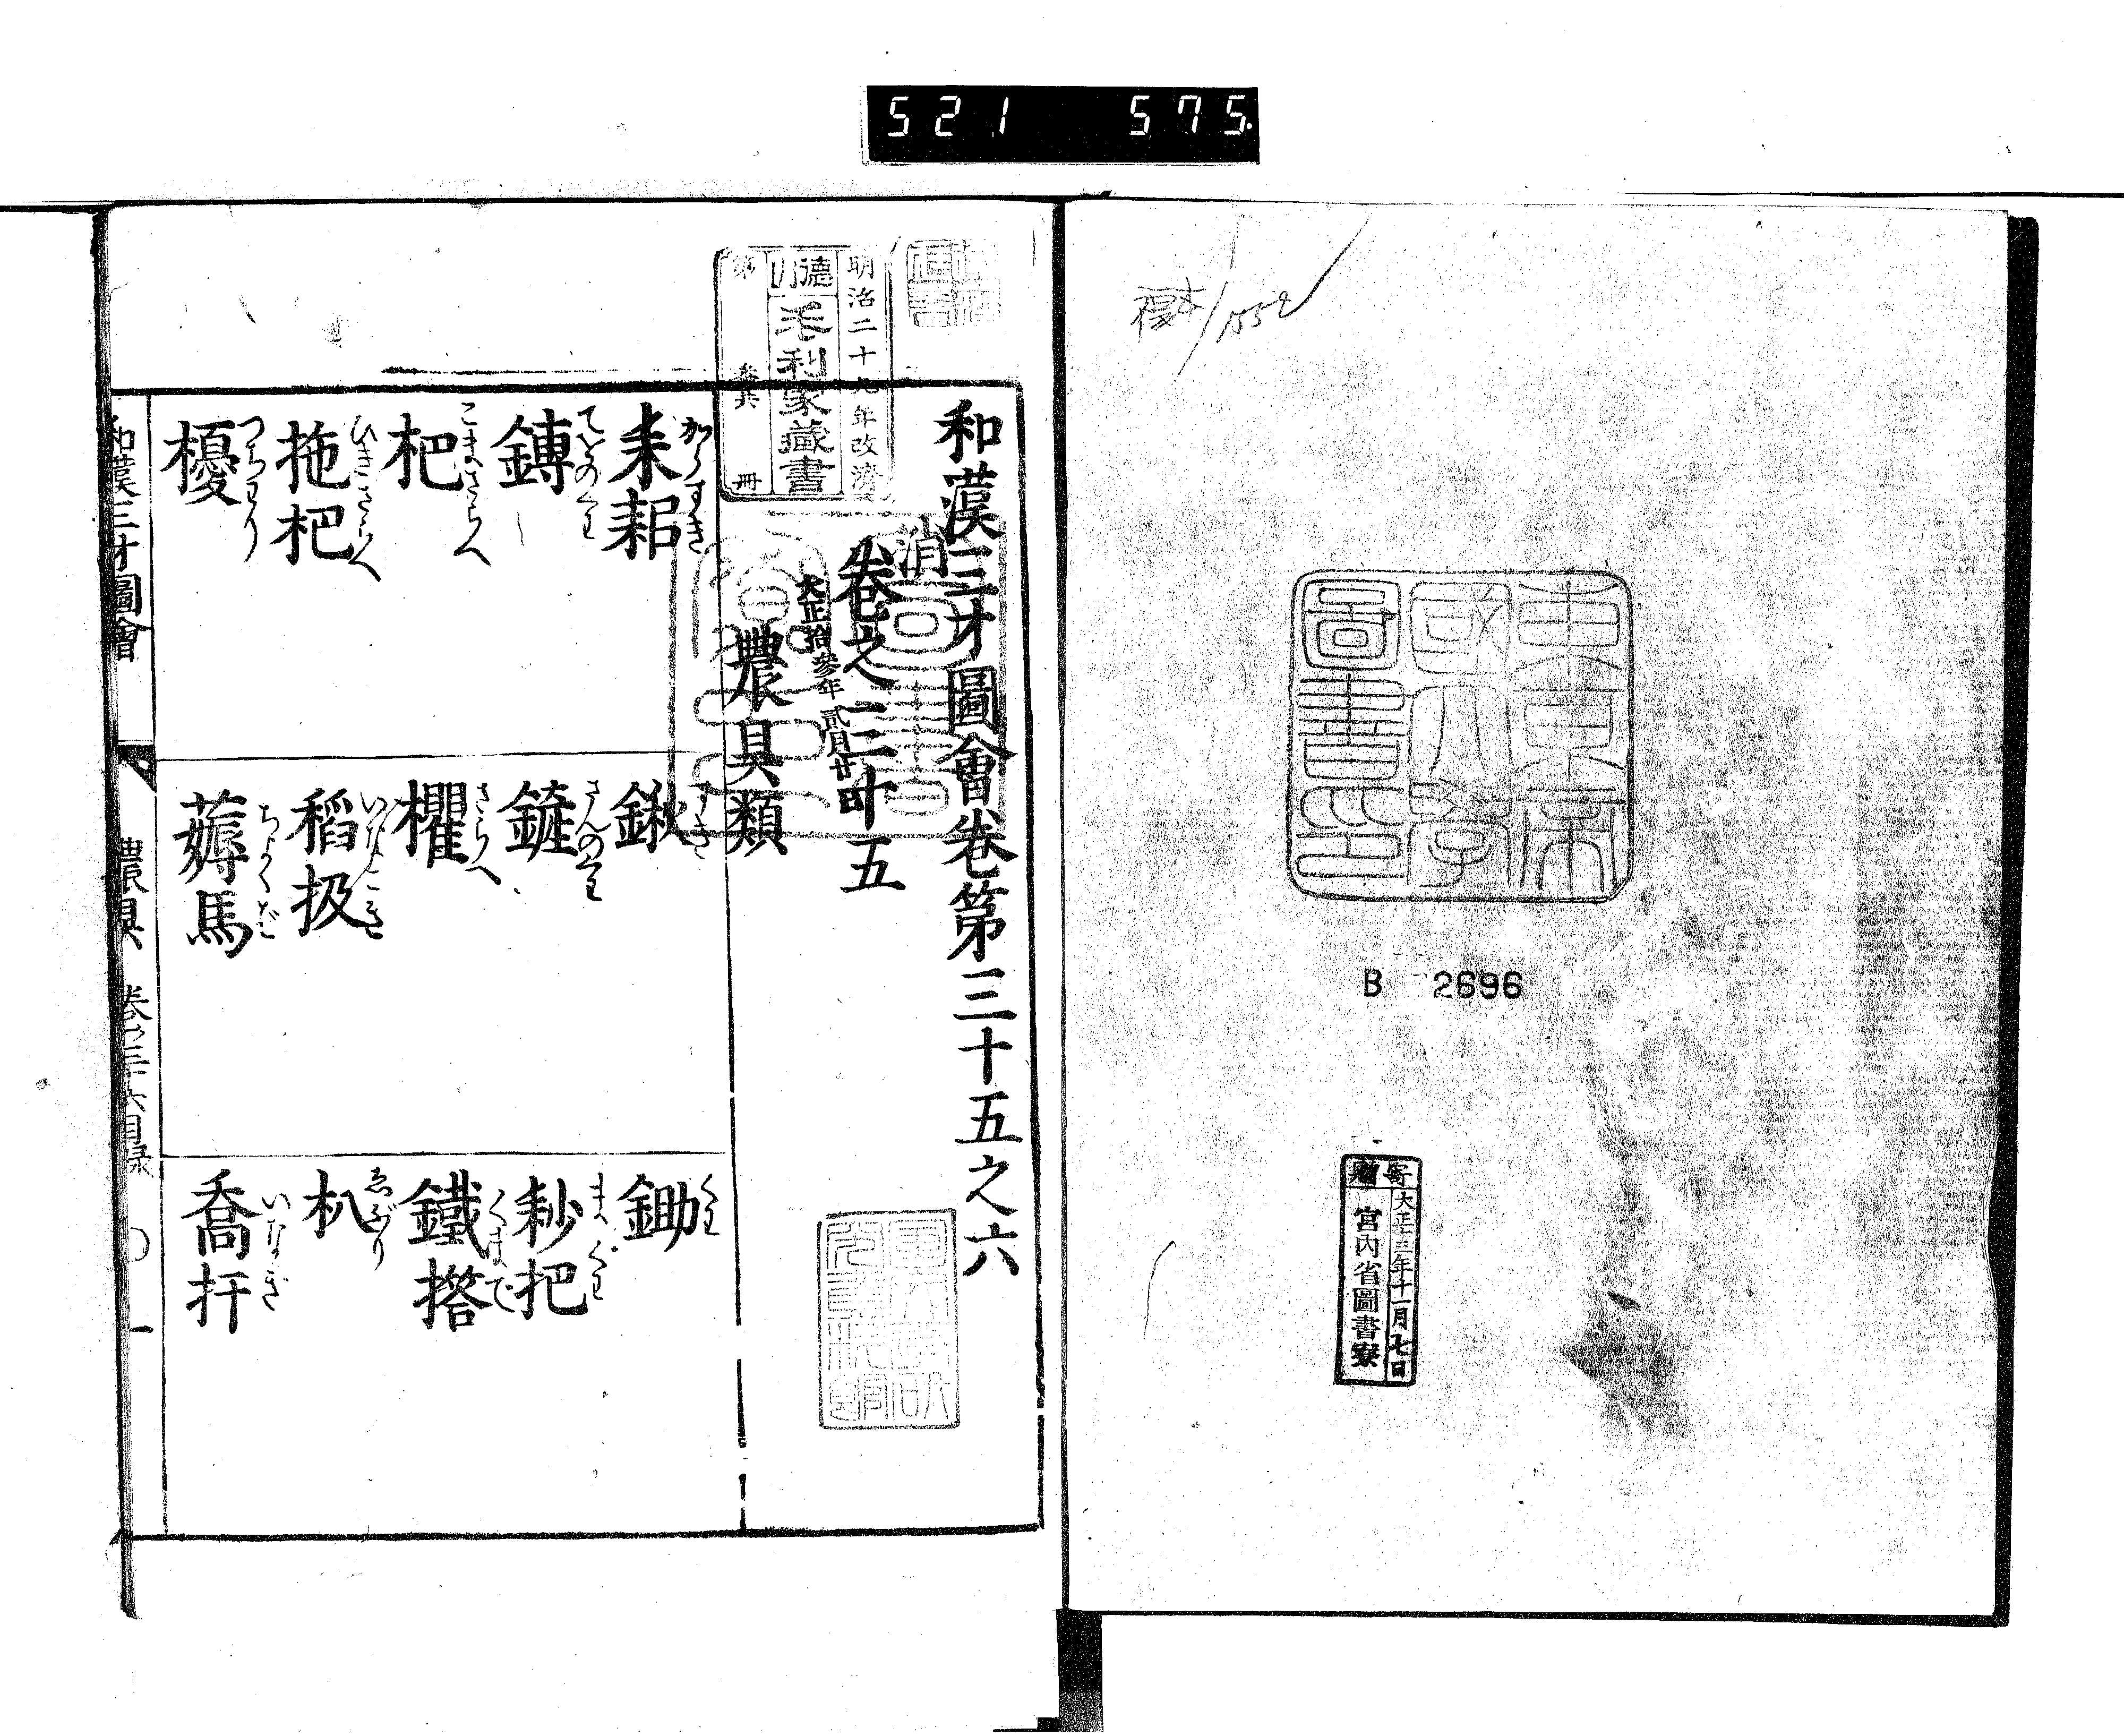 521 575.
複本
1552
東京帝
國大學
圖書印
B 2696
寄贈
大正十三年十一月七日
宮内省圖書寮
明治二十九年改濟
德山
毛利家藏書
第
共
冊
消
大正拾參年貳月廿
和漢三才圖會卷第三十五之六
卷之三十五
農具類
耒耜 からすき
鍬 すき
鋤 くわ
鎛 てをのくわ
鏟 さんのくわ
耖把 まくわ
杷 こまさらへ
欋 さらへ
鐵撘 くまで
拖杷 ひきさらへ
稻扱 いねこき
朳 ゑぶり
櫌 つちわり
薅馬 ちよくば
喬扞 いなぎ
和漢三才圖會
農具 卷之三十五六目录 〇一